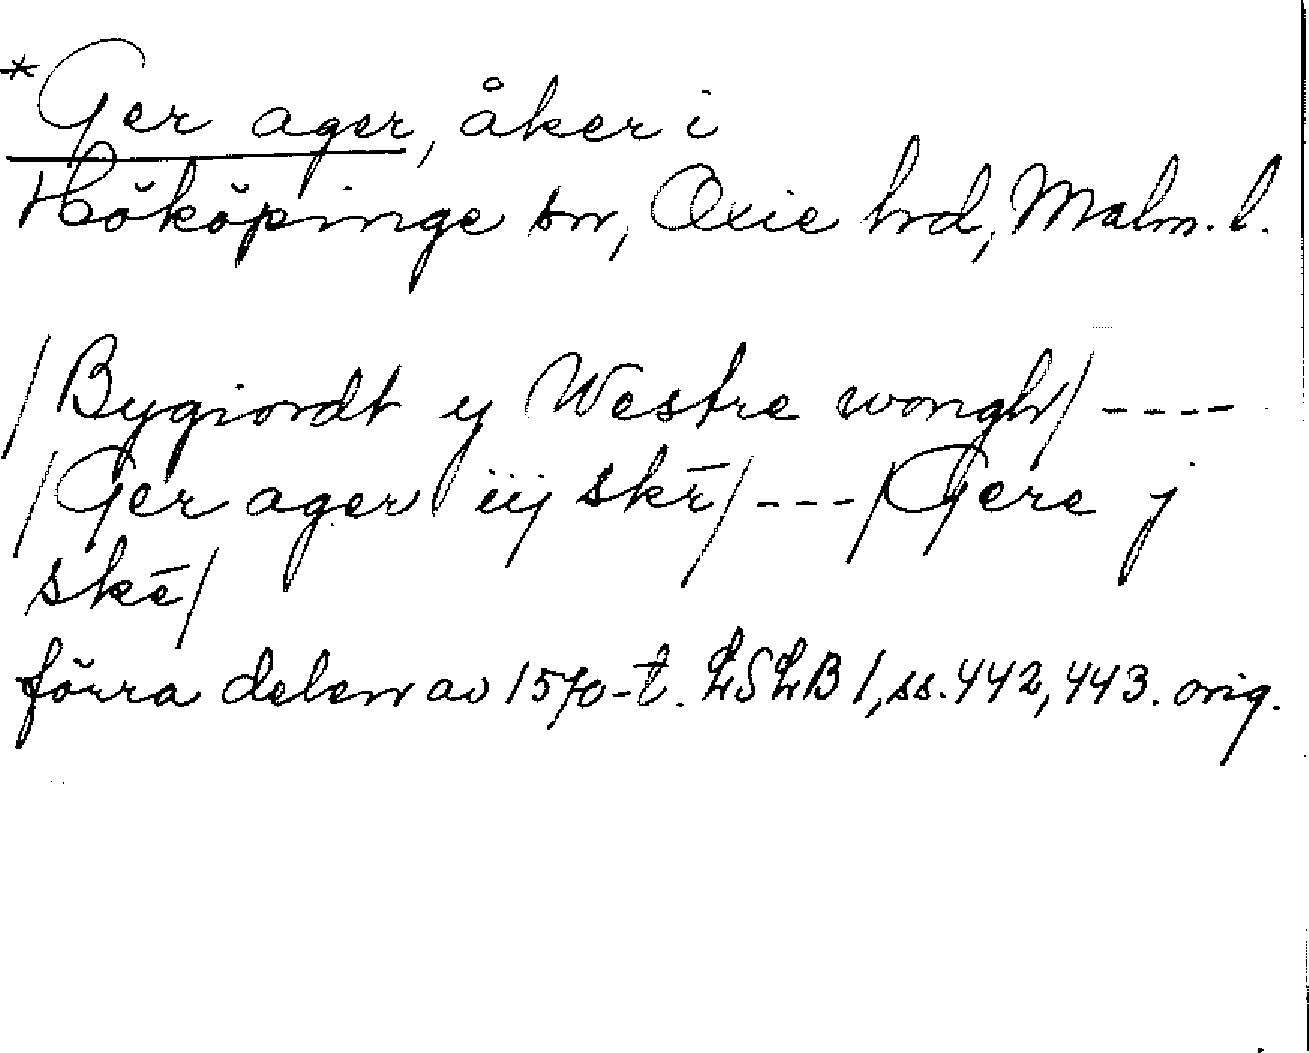 *Ger ager, åker i
Hököpinge sn, Oxie hd, Malm. l.
/Bygiordt y Westre wongh/ ----
/Ger ager iij skē/ ---/Gere j
skē/
förra delen av 1570-t. LSLB 1, ss. 442, 443. orig.